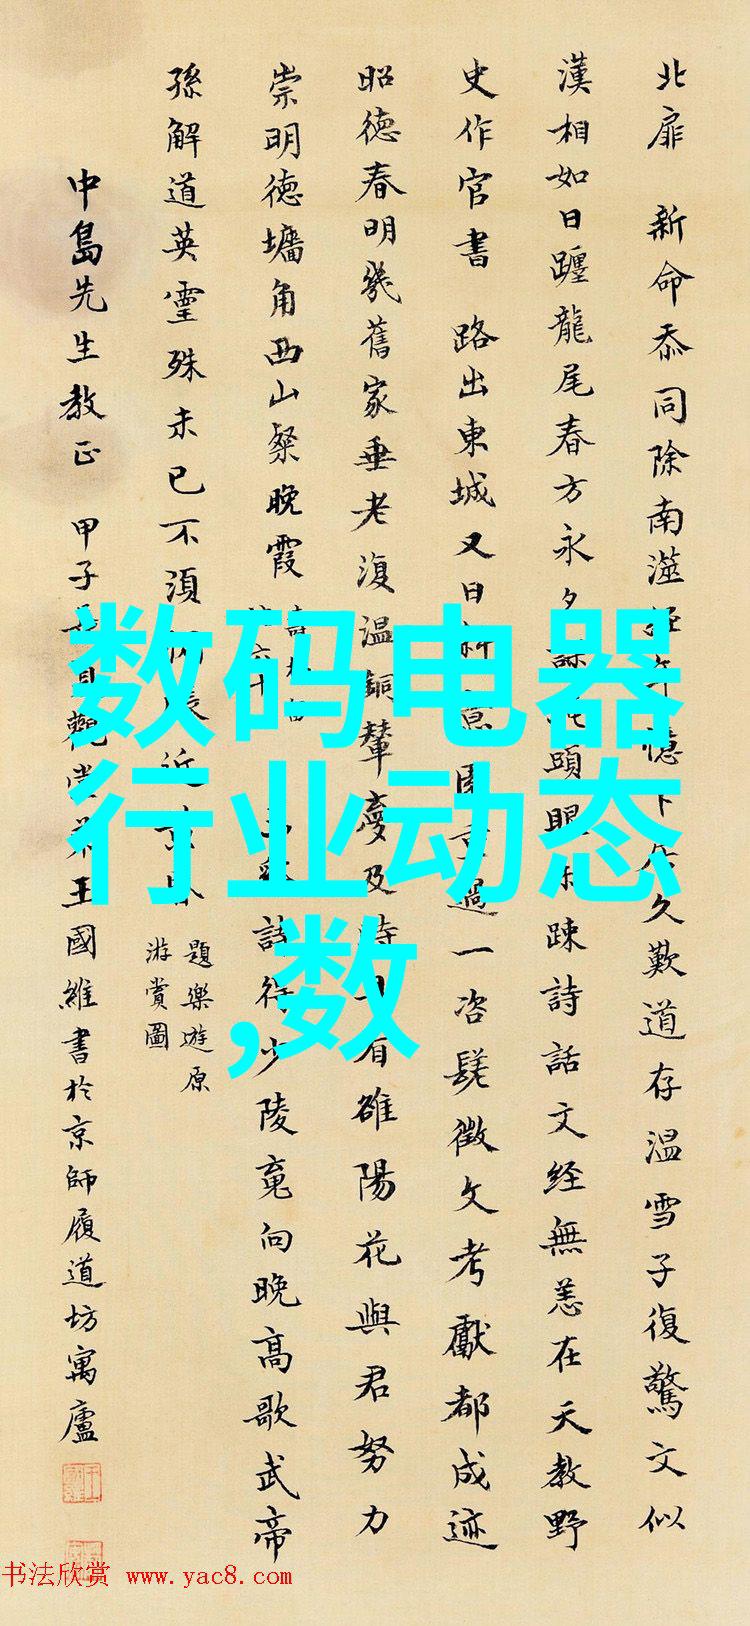 北扉 新命忝同除南澨經年憶卜居久歎道存温雪子復驚文似
漢相如日躔龍尾春方永夕頭眼未疎詩話文經無恙在天教野
史作官書 路出東城又日斜意園重過一咨髮徵文考獻都成迹
昭德春明幾舊家垂老復温銅輦夢及時有雒陽花與君努力
崇明德墉角西山粲晚霞
詩得少陵竟向晚高歌武帝
孫解道英靈殊未已不須近
題樂遊原
游賞圖
中島先生教正 甲子觀堂弟王國維書於京師履道坊寓廬
数码电器
行业动态
,数
书法欣赏 www.yac8.com